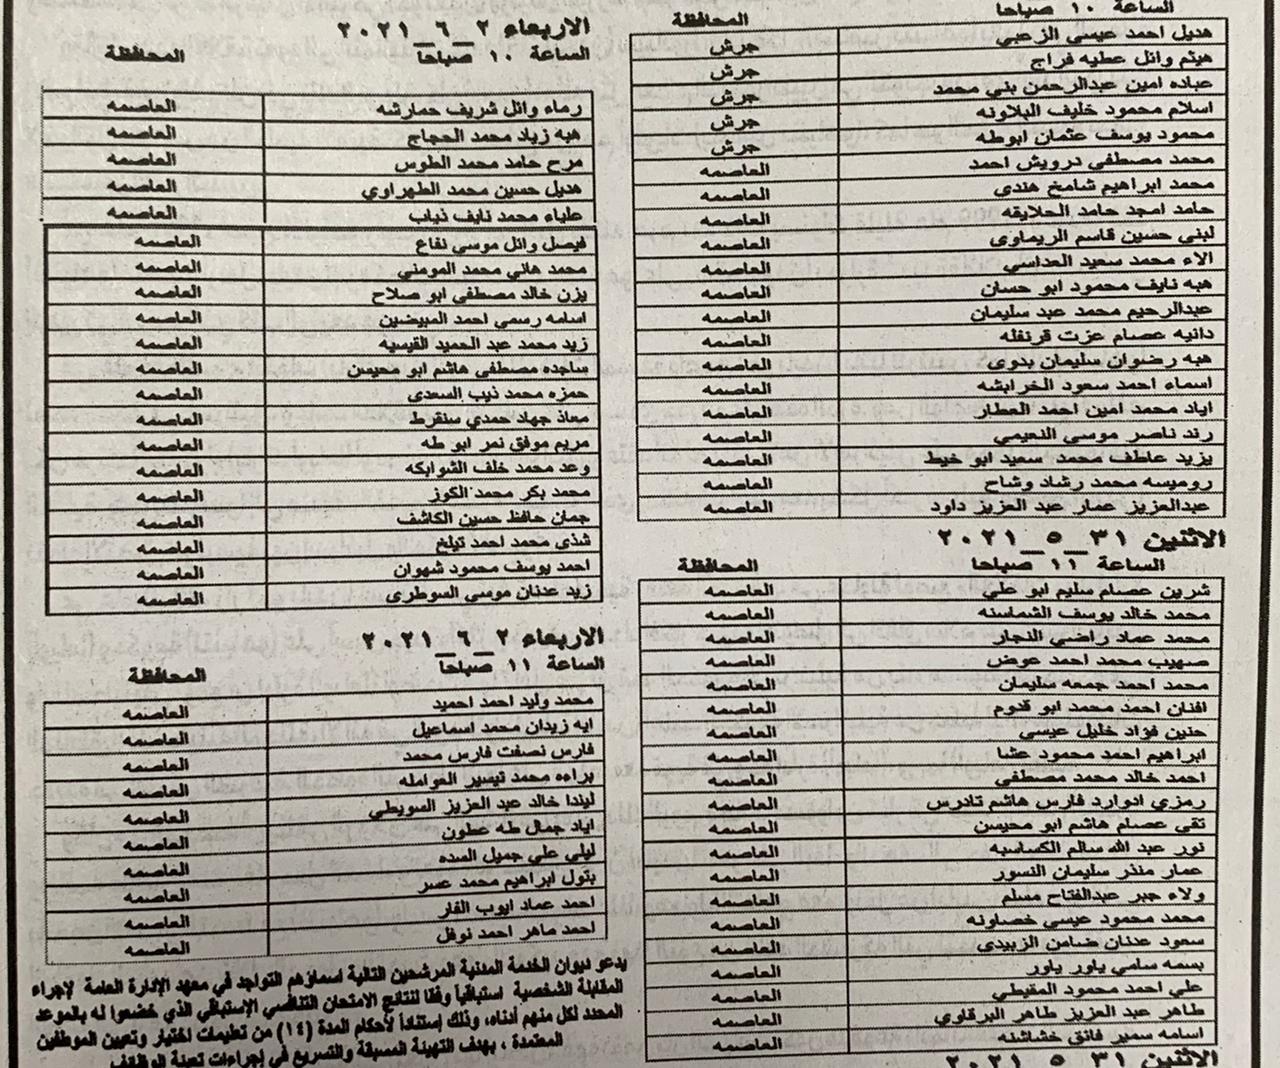 الساعة ١٠ صباحا المحافظة
هديل احمد عيسى الزعبي جرش
هيثم وائل عطيه فراج جرش
عباده امين عبدالرحمن بني محمد جرش
اسلام محمود خليف البلاونه جرش
محمود يوسف عثمان ابوطه جرش
محمد مصطفى درويش احمد العاصمه
محمد ابراهيم شامخ هندى العاصمه
حامد امجد حامد الحلايقه العاصمه
لبنى حسين قاسم الريماوى العاصمه
الاء محمد سعيد العداسي العاصمه
هبه نايف محمود ابو حسان العاصمه
عبدالرحيم محمد عبد سليمان العاصمه
دانيه عصام عزت قرنفله العاصمه
هبه رضوان سليمان بدوى العاصمه
اسماء احمد سعود الخرابشه العاصمه
اياد محمد امين احمد العطار العاصمه
رند ناصر موسى النعيمي العاصمه
يزيد عاطف محمد سعيد ابو خيط العاصمه
روميسه محمد رشاد وشاح العاصمه
عبدالعزيز عمار عبد العزيز داود العاصمه
الاثنين ٣١_٥_٢٠٢١
الساعة ١١ صباحا المحافظة
شرين عصام سليم ابو علي العاصمه
محمد خالد يوسف الشماسنه العاصمه
محمد عماد راضي النجار العاصمه
صهيب محمد احمد عوض العاصمه
محمد احمد جمعه سليمان العاصمه
افنان احمد محمد ابو قدوم العاصمه
حنين فؤاد خليل عيسى العاصمه
ابراهيم احمد محمود عثا العاصمه
احمد خالد محمد مصطفى العاصمه
رمزي ادوارد فارس هاشم تادرس العاصمه
تقى عصام هاشم ابو محيسن العاصمه
نور عبد الله سالم الكساسبه العاصمه
عمار منذر سليمان النسور العاصمه
ولاء جبر عبدالفتاح مسلم العاصمه
محمد محمود عيسى خصاونه العاصمه
سعود عدنان ضامن الزبيدى العاصمه
بسمه سامي ياور ياور العاصمه
علي احمد محمود المقيطي العاصمه
طاهر عبد العزيز طاهر البرقاوي العاصمه
اسامه سمير فائق خشاشنه العاصمه
الاثنين ٣١_٥_٢٠٢١
الاربعاء ٢_٦_٢٠٢١
الساعة ١٠ صباحا المحافظة
رماء وائل شريف حمارشه العاصمه
هبه زياد محمد الحجاج العاصمه
مرح حامد محمد الطوس العاصمه
هديل حسين محمد الطهراوي العاصمه
علياء محمد نايف ذياب العاصمه
فيصل وائل موسى نفاع العاصمه
محمد هاني محمد المومني العاصمه
يزن خالد مصطفى ابو صلاح العاصمه
اسامه رسمي احمد المبيضين العاصمه
زيد محمد عبد الحميد القيسيه العاصمه
ساجده مصطفى هاشم ابو محيسن العاصمه
حمزه محمد ذيب السعدى العاصمه
معاذ جهاد حمدي سنقرط العاصمه
مريم موفق نمر ابو طه العاصمه
وعد محمد خلف الشوابكه العاصمه
محمد بكر محمد الكوز العاصمه
جمان حافظ حسين الكاشف العاصمه
شذى محمد احمد تيلخ العاصمه
احمد يوسف محمود شهوان العاصمه
زيد عدنان موسى السوطرى العاصمه
الاربعاء ٢_٦_٢٠٢١
الساعة ١١ صباحا
المحافظة
محمد وليد احمد احميد العاصمه
ايه زيدان محمد اسماعيل العاصمه
فارس نصفت فارس محمد العاصمه
براءه محمد تيسير العوامله العاصمه
ليندا خالد عبد العزيز السويطي العاصمه
اياد جمال طه عطون العاصمه
ليلى علي جميل السده العاصمه
بتول ابراهيم محمد عسر العاصمه
احمد عماد ايوب الفار العاصمه
احمد ماهر احمد نوفل العاصمه
يدعو ديوان الخدمة المدنية المرشحين التالية اسماؤهم التواجد في معهد الإدارة العامة لإجراء
المقابلة الشخصية استباقياً وفقا لنتائج الامتحان التنافسي الإستباقي الذي خضعوا له بالموعد
المحدد لكل منهم أدناه، وذلك إستناداً لأحكام المدة (١٤) من تعليمات اختيار وتعيين الموظفين
المعتمدة ، بهدف التهيئة المسبقة والتسريع في إجراءات تعبئة الوظائف